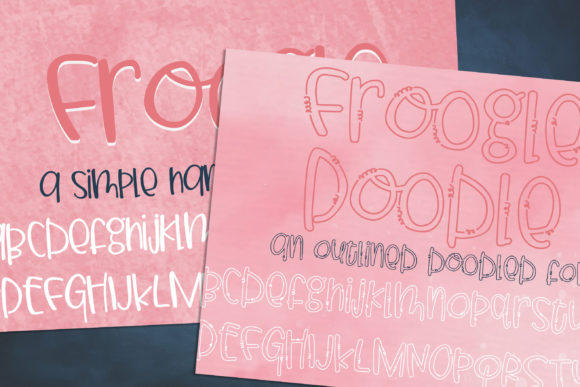 Froogle
a simple han
aBCDefghijklm
DEFGHIJKLM
Froogle
DooDle
an outlineD DooDleD fo
BCDefghijklmnopqrstu
DEFGHIJKLMNOPQRST